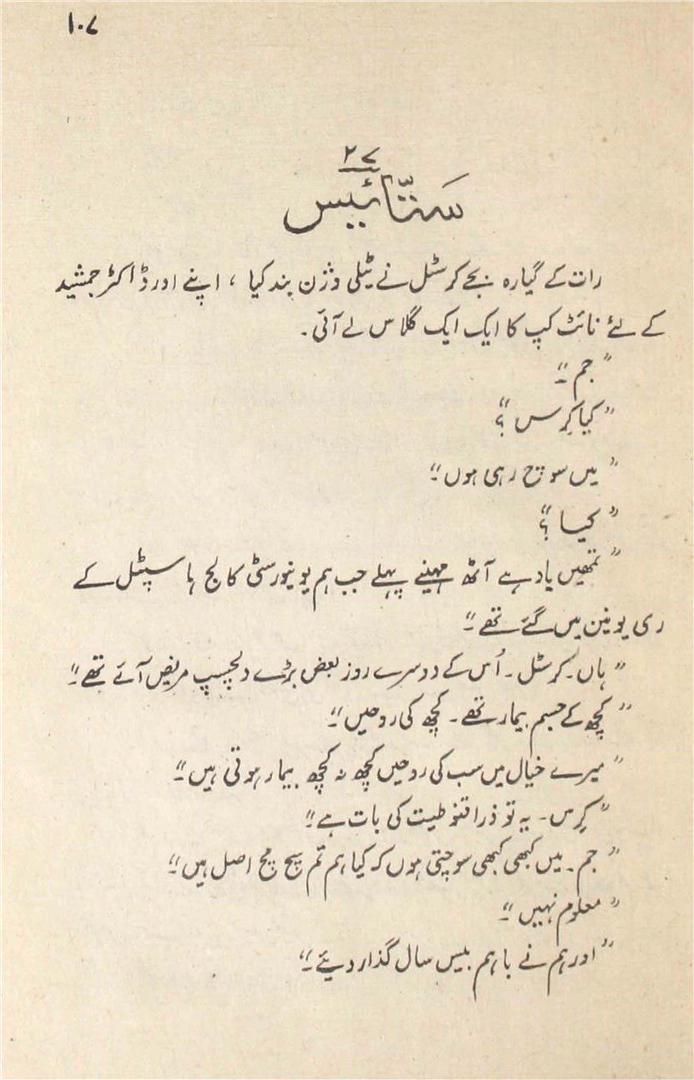 ۱۰۷
۲۷
ستّائیس
رات کے گیارہ بجے کرسٹل نے ٹیلی وژن بند کیا ، اپنے اور ڈاکٹر جمشید
کے لئے نائٹ کپ کا ایک ایک گلاس لے آئی ۔
" جم ۔"
" کیا کرِس " ؟
" میں سوچ رہی ہوں ۔"
" کیا " ؟
" تمھیں یاد ہے آٹھ مہینے پہلے جب ہم یونیورسٹی کالج ہاسپٹل کے
ری یونین میں گئے تھے ۔"
" ہاں ۔ کرسٹل ۔ اُس کے دوسرے روز بعض بڑے دلچسپ مریض آئے تھے ۔"
" کچھ کے جسم بیمار تھے ۔ کچھ کی روحیں ۔"
" میرے خیال میں سب کی روحیں کچھ نہ کچھ بیمار ہوتی ہیں ۔"
" کرِس ۔ یہ تو ذرا قنوطیت کی بات ہے ۔"
" جم ۔ میں کبھی کبھی سوچتی ہوں کہ کیا ہم تم سچ مچ اصل ہیں ۔"
" معلوم نہیں ۔"
" اور ہم نے باہم بیس سال گذار دیئے ۔"